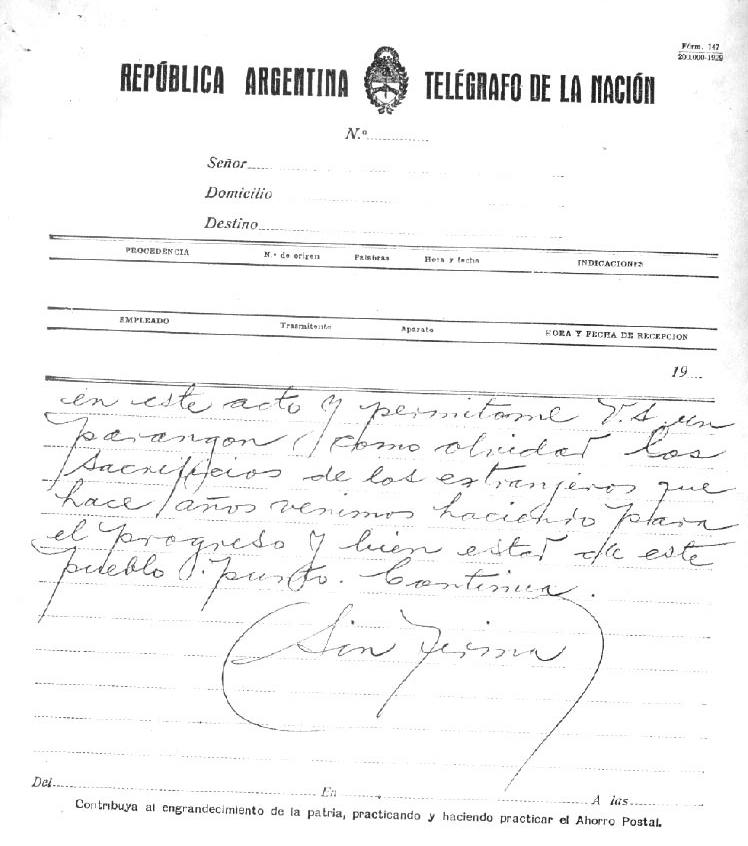 Fórm. 147
200.000-1929
REPÚBLICA ARGENTINA TELÉGRAFO DE LA NACIÓN
N.º
Señor
Domicilio
Destino
PROCEDENCIA N.º de origen Palabras Hora y fecha INDICACIONES
EMPLEADO Trasmitente Aparato HORA Y FECHA DE RECEPCION
19
en este acto y permitame V.S. un
parangon como olvidar los
sacrificios de los estranjeros que
hace años venimos haciendo para
el progreso y bien estar de este
pueblo punto. Continua.
Sin firma
Del En A las
Contribuya al engrandecimiento de la patria, practicando y haciendo practicar el Ahorro Postal.